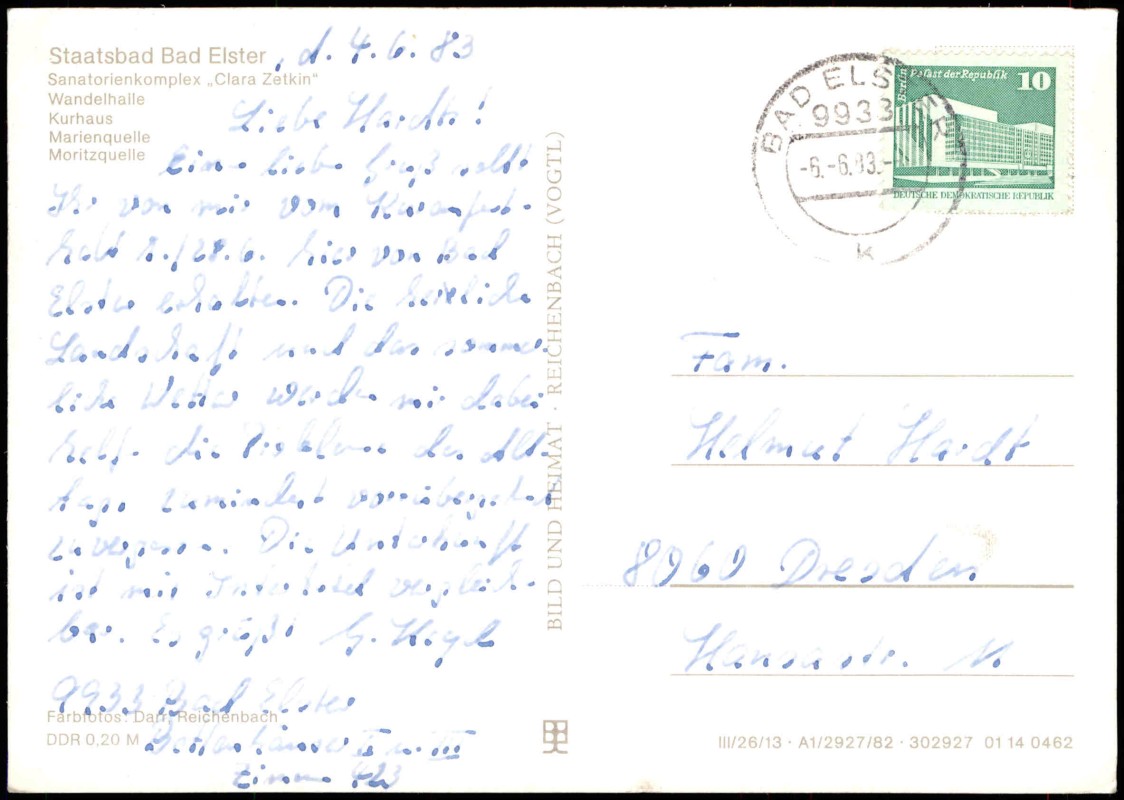 Staatsbad Bad Elster, d. 4.6.83
Sanatorienkomplex „Clara Zetkin“
Wandelhalle
Kurhaus
Marienquelle
Moritzquelle
Liebe Hardts!
Eine liebe Gruß sollt
Ihr von mir vom Kuraufent-
halt /28.6. hier von Bad
Elster erhalten. Die herrliche
Landschaft und das sommer-
liche Wetter werden mir dabei
helf. die Probleme des All-
tags zumindest vorübergehend
zu vergessen. Die Unterkunft
ist mir Interhotel vergleich-
bar. Es grüßt G.
9933 Bad Elster
Farbfotos: Darr, Reichenbach
DDR 0,20 M
II u. III
Zimmer 423
BILD UND HEIMAT · REICHENBACH (VOGTL)
BAD ELSTER
9933
-6.-6.83.-
k
Berlin Palast der Republik 10
DEUTSCHE DEMOKRATISCHE REPUBLIK
Fam.
Helmut Hardt
8060 Dresden
Hansastr. 11
III/26/13 · A1/2927/82 · 302927 01 14 0462